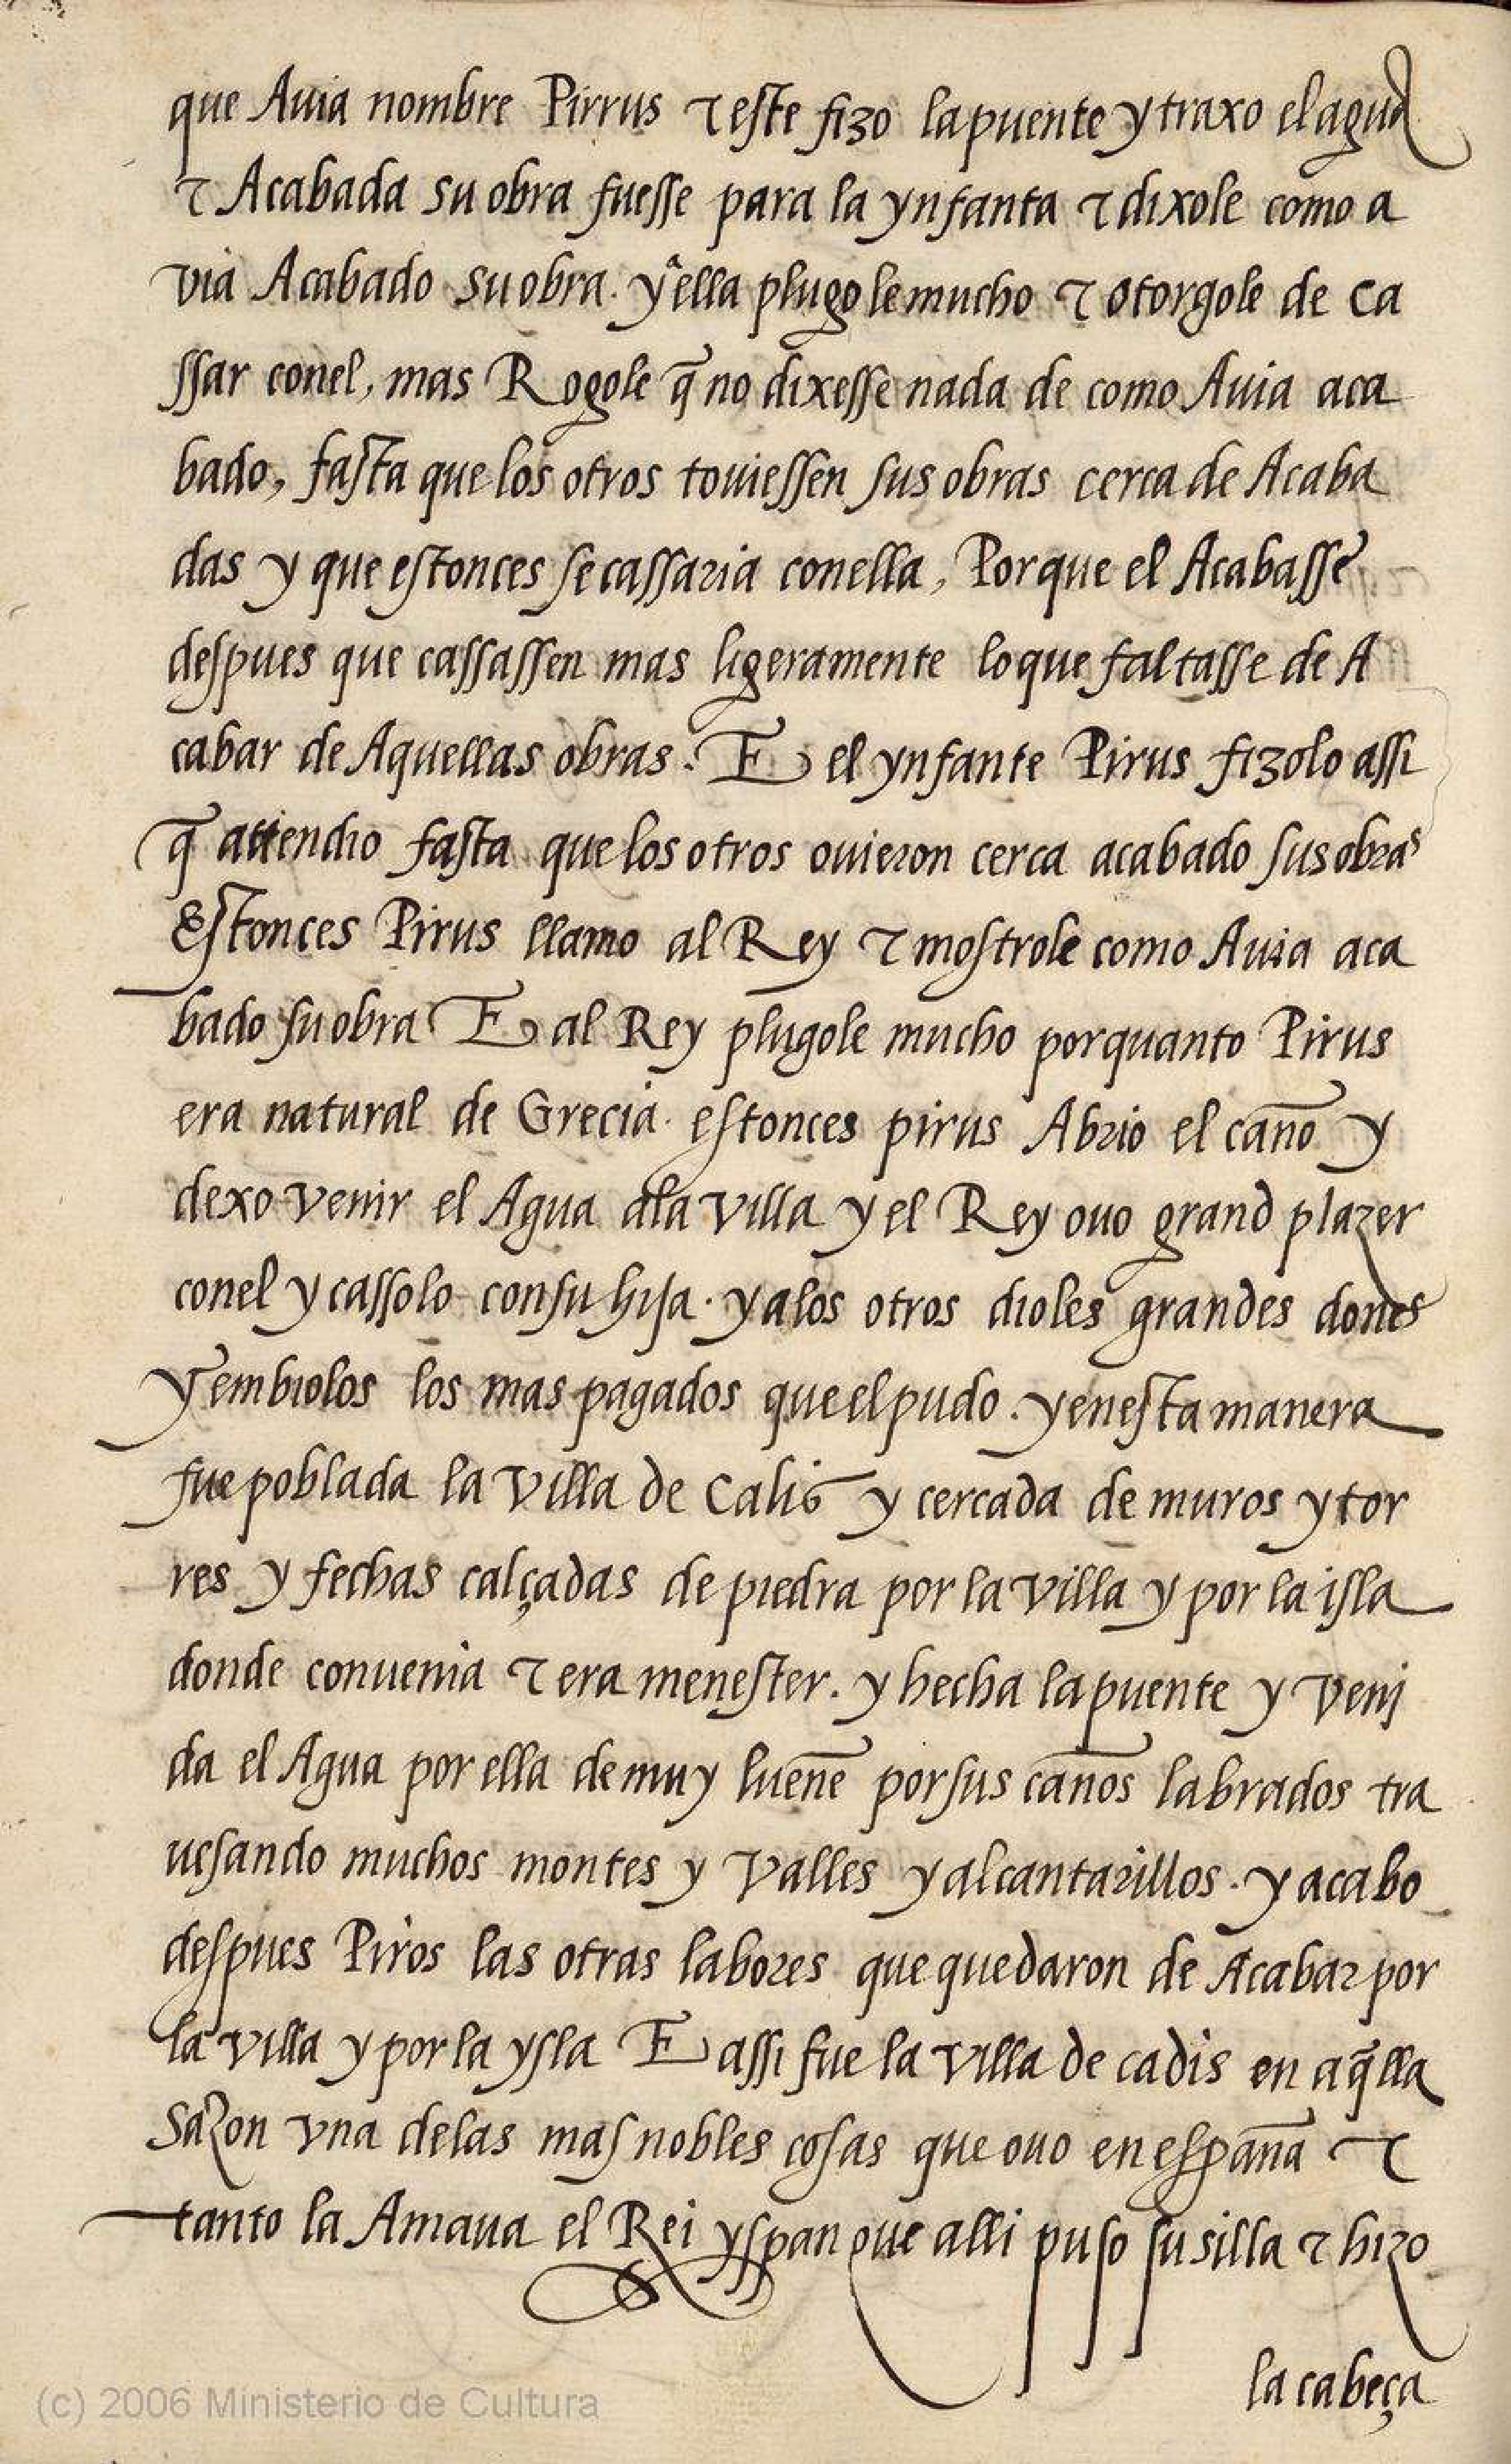 que Auia nombre Pirrus ⁊ este fizo la puente y traxo el agua
⁊ Acabada su obra fuesse para la ynfanta ⁊ dixole como a
via Acabado su obra. y ella plugole mucho ⁊ otorgole de ca
ssar conel, mas Rogole q̄ no dixesse nada de como Auia aca
bado, fasta que los otros touiessen sus obras cerca de Acaba
das y que estonces se cassaria conella, Porque el Acabasse
despues que cassassen mas ligeramente lo que faltasse de A
cabar de Aquellas obras. E el ynfante Pirus fizolo assi
q̄ atiendio fasta que los otros ouieron cerca acabado sus obras
Estonces Pirus llamo al Rey ⁊ mostrole como Auia aca
bado su obra E al Rey plugole mucho porquanto Pirus
era natural de Grecia. estonces pirus Abrio el caño y
dexo venir el Agua ala villa y el Rey ouo grand plazer
conel y cassolo con su hija. y alos otros dioles grandes dones
y embiolos los mas pagados que el pudo. y enesta manera
fue poblada la villa de Calis y cercada de muros y tor
res y fechas calçadas de piedra por la villa y por la isla
donde conuenia ⁊ era menester. y hecha la puente y veni
da el Agua por ella de muy lueñe por sus caños labrados tra
uesando muchos montes y valles y alcantarillos. y acabo
despues Piros las otras labores que quedaron de Acabar por
la villa y por la ysla E assi fue la villa de cadis en aq̄lla
sazon vna delas mas nobles cosas que ouo en españa ⁊
tanto la Amaua el Rei yspan que alli puso su silla ⁊ hizo
la cabeça
(c) 2006 Ministerio de Cultura